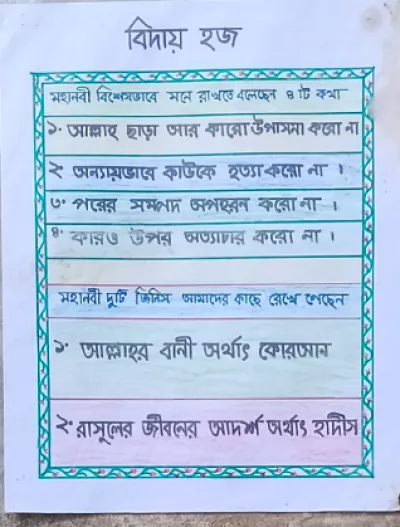 বিদায় হজ
মহানবী বিশেষভাবে মনে রাখতে বলেছেন ৪ টি কথা
১. আল্লাহ ছাড়া আর কারো উপাসনা করো না
২. অন্যায়ভাবে কাউকে হত্যা করো না ।
৩. পরের সম্পদ অপহরন করো না ।
৪. কারও উপর অত্যাচার করো না ।
মহানবী দুটি জিনিস আমাদের কাছে রেখে গেছেন
১. আল্লাহর বানী অর্থাৎ কোরআন
২. রাসূলের জীবনের আদর্শ অর্থাৎ হাদীস